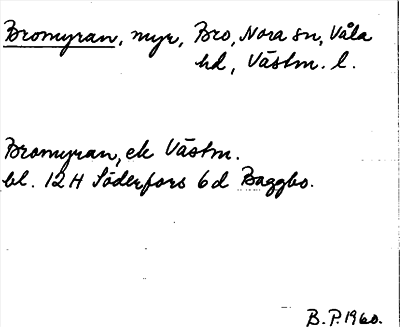 Bromyran, myr, Bro, Nora sn, Våla
hd, Västm. l.
Bromyran, ek Västm.
bl. 12H Söderfors 6d Baggbo.
B.P. 1960.